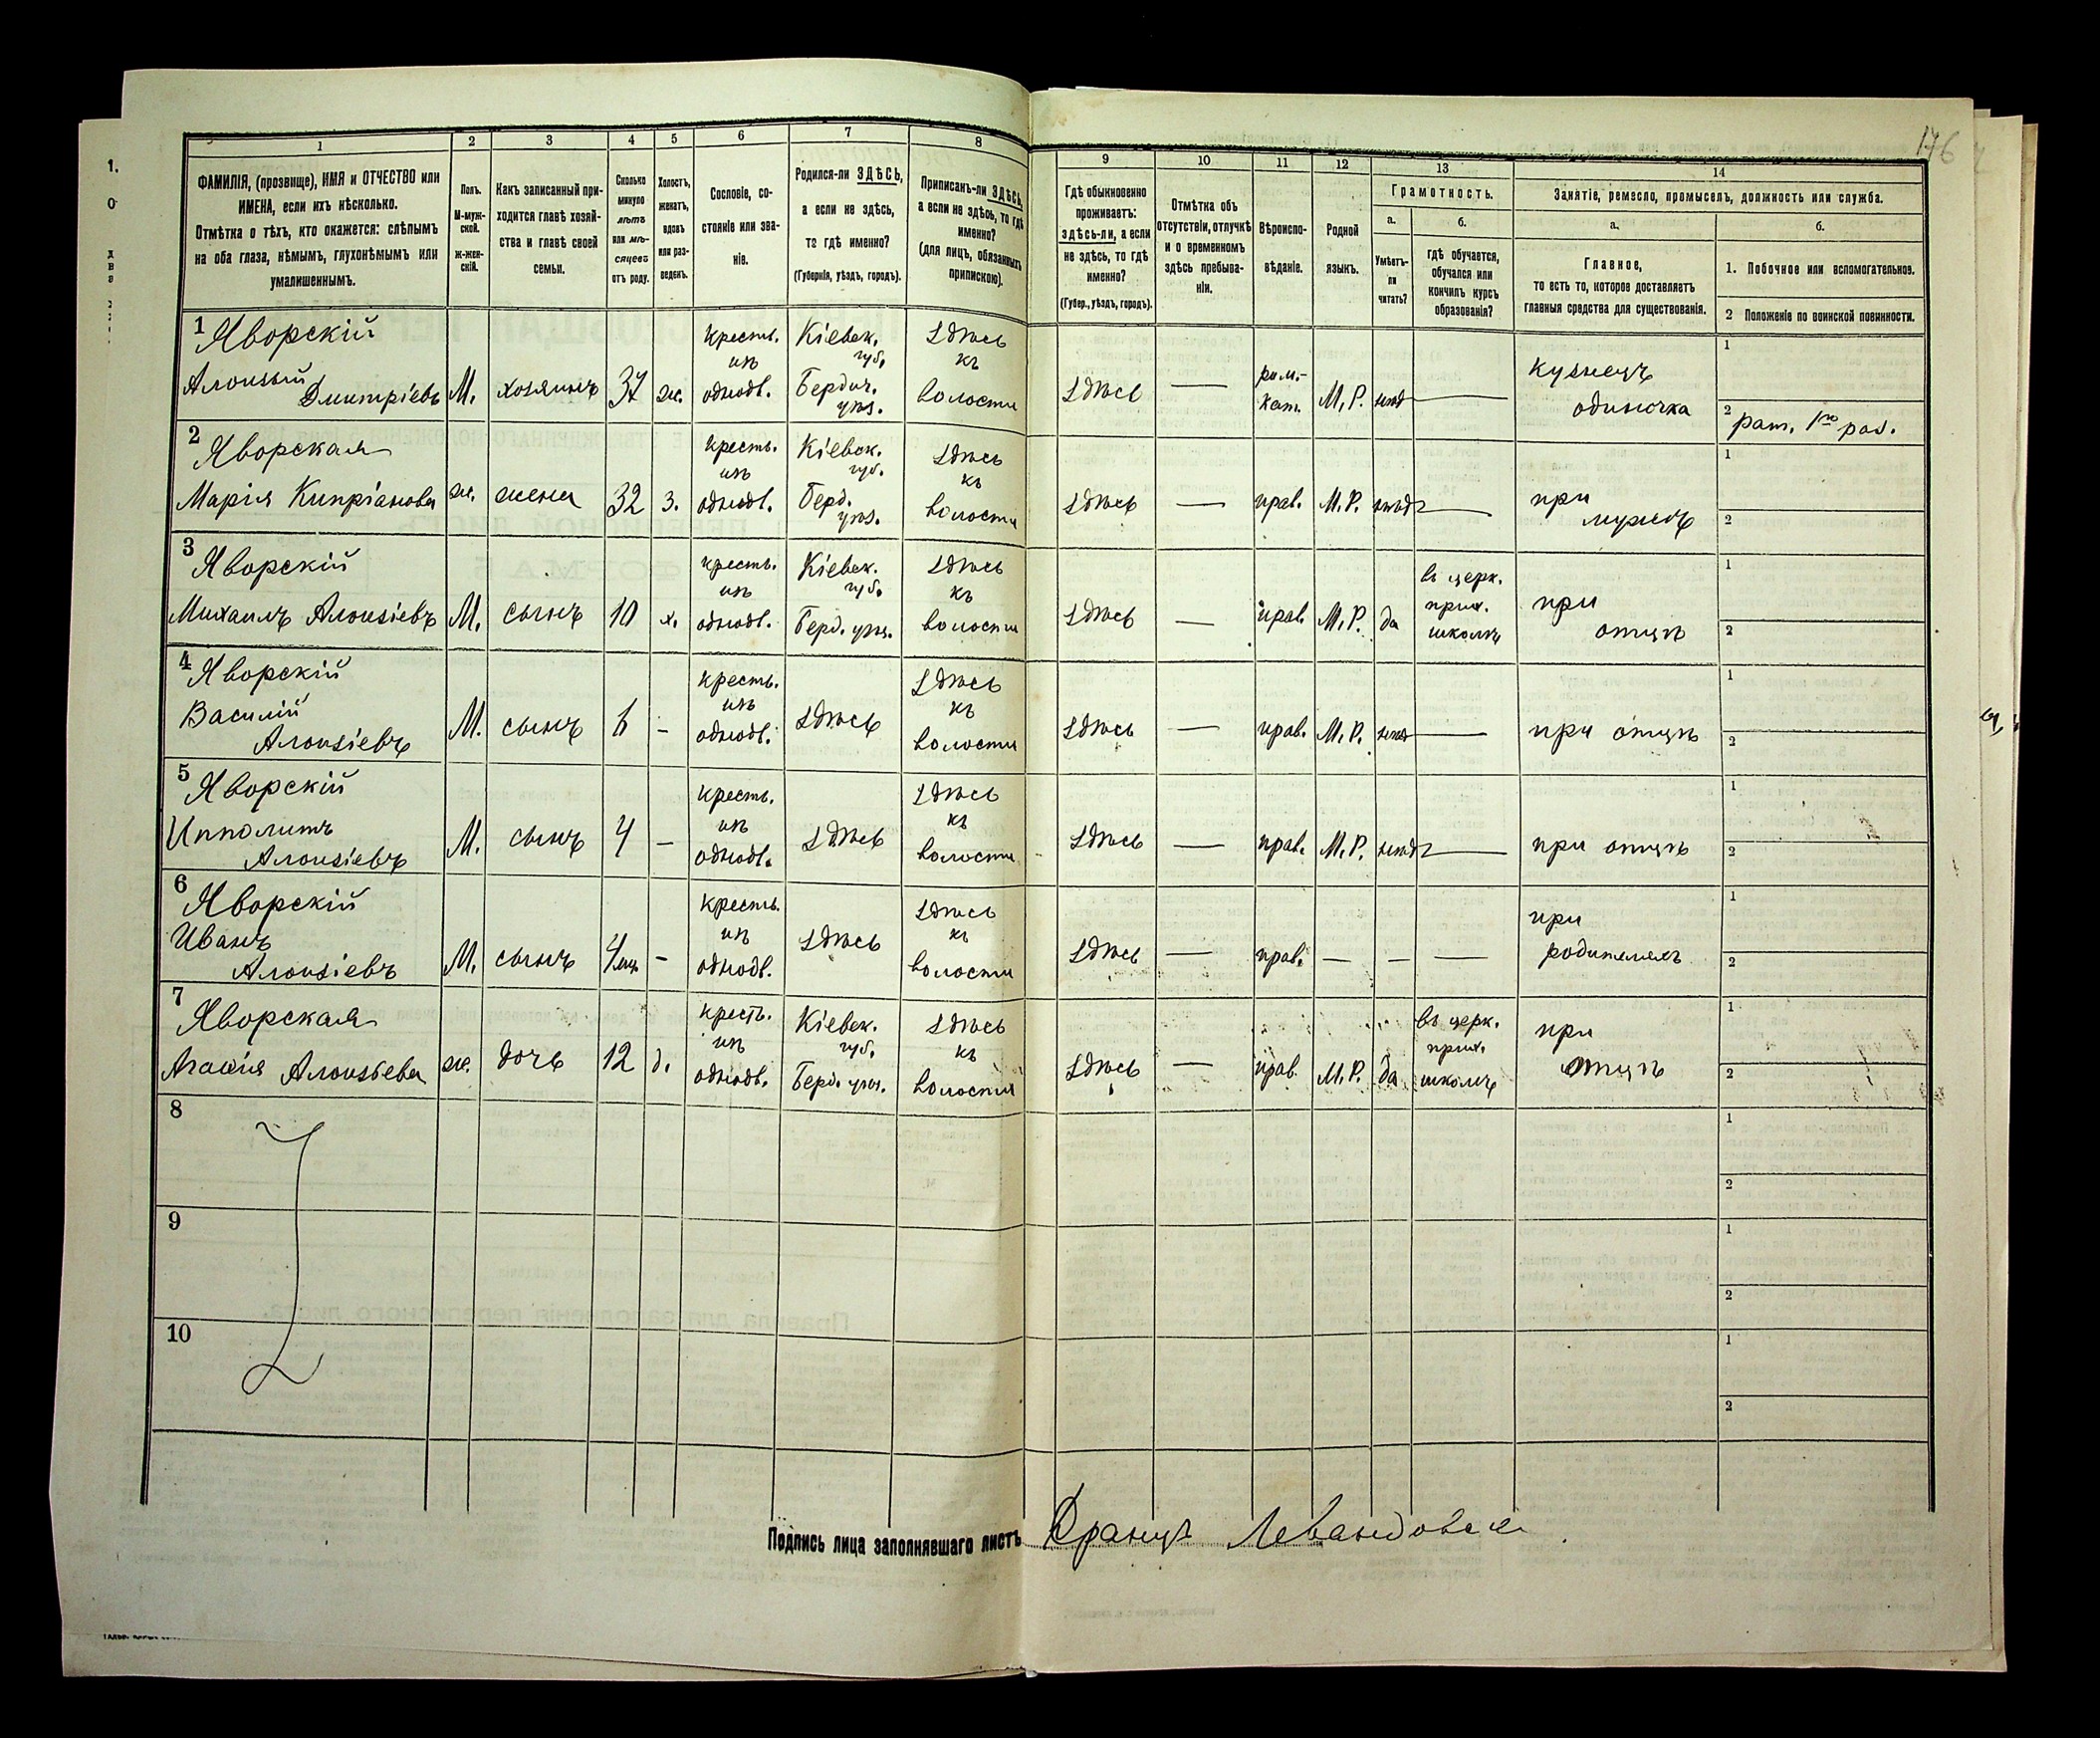 176
1 2 3 4 5 6 7 8 9 10 11 12 13 14
ФАМИЛІЯ, (прозвище), ИМЯ и ОТЧЕСТВО или
ИМЕНА, если ихъ нѣсколько.
Отмѣтка о тѣхъ, кто окажется: слѣпымъ
на оба глаза, нѣмымъ, глухонѣмымъ или
умалишеннымъ.
Полъ.
М-муж-
ской.
ж-жен-
скій.
Какъ записанный при-
ходится главѣ хозяй-
ства и главѣ своей
семьи.
Сколько
минуло
лѣтъ
или мѣ-
сяцевъ
отъ роду.
Холостъ,
женатъ,
вдовъ
или раз-
веденъ.
Сословіе, со-
стояніе или зва-
ніе.
Родился-ли ЗДѢСЬ,
а если не здѣсь,
то гдѣ именно?
(Губернія, уѣздъ, городъ).
Приписанъ-ли ЗДѢСЬ,
а если не здѣсь, то гдѣ
именно?
(для лицъ, обязанныхъ
припискою).
Гдѣ обыкновенно
проживаетъ:
здѣсь-ли, а если
не здѣсь, то гдѣ
именно?
(Губер., уѣздъ, городъ).
Отмѣтка объ
отсутствіи, отлучкѣ
и о временномъ
здѣсь пребыва-
ніи.
Вѣроиспо-
вѣданіе.
Родной
языкъ.
Грамотность.
а.
Умѣетъ-
ли
читать?
б.
Гдѣ обучается,
обучался или
кончилъ курсъ
образованія?
Занятіе, ремесло, промыселъ, должность или служба.
а.
Главное,
то есть то, которое доставляетъ
главныя средства для существованія.
б.
1. Побочное или вспомогательное.
2 Положеніе по воинской повинности.
1 Яворскій
Алоизый
Дмитріевъ
М. хозяинъ 37 ж.
кресть.
изъ
однодв.
Кіевск.
губ.
Бердич.
уѣз.
Здѣсь
къ
волости
Здѣсь —
рим.-
кат.
М.Р. нѣтъ —
кузнецъ
одиночка
1
2 рат. 1го раз.
2 Яворская
Марія Кипріанова
ж. жена 32 з.
кресть.
изъ
однодв.
Кіевск.
губ.
Берд.
уѣз.
Здѣсь
къ
волости
Здѣсь — прав. М.Р. нѣтъ —
при
мужѣ
1
2
3 Яворскій
Михаилъ Алоизіевъ
М. сынъ 10 х.
кресть.
изъ
однодв.
Кіевск.
губ.
Берд. уѣз.
Здѣсь
къ
волости
Здѣсь — прав. М.Р. да
въ церк.
прих.
школѣ
при
отцѣ
1
2
4 Яворскій
Василій
Алоизіевъ
М. сынъ 6 -
кресть.
изъ
однодв.
Здѣсь
Здѣсь
къ
волости
Здѣсь — прав. М.Р. нѣтъ —
при отцѣ
1
2
5 Яворскій
Ипполитъ
Алоизіевъ
М. сынъ 4 -
кресть.
изъ
однодв.
Здѣсь
Здѣсь
къ
волости
Здѣсь — прав. М.Р. нѣтъ —
при отцѣ
1
2
6 Яворскій
Иванъ
Алоизіевъ
М. сынъ 4 мц. -
кресть.
изъ
однодв.
Здѣсь
Здѣсь
къ
волости
Здѣсь — прав. — — —
при
родителяхъ
1
2
7 Яворская
Агафія Алоизіева
ж. дочь 12 д.
кресть.
изъ
однодв.
Кіевск.
губ.
Берд. уѣз.
Здѣсь
къ
волости
Здѣсь — прав. М.Р. да
въ церк.
прих.
школѣ
при
отцѣ
1
2
8
1
2
9
1
2
10
1
2
Подпись лица заполнявшаго листъ Францъ Левандовски